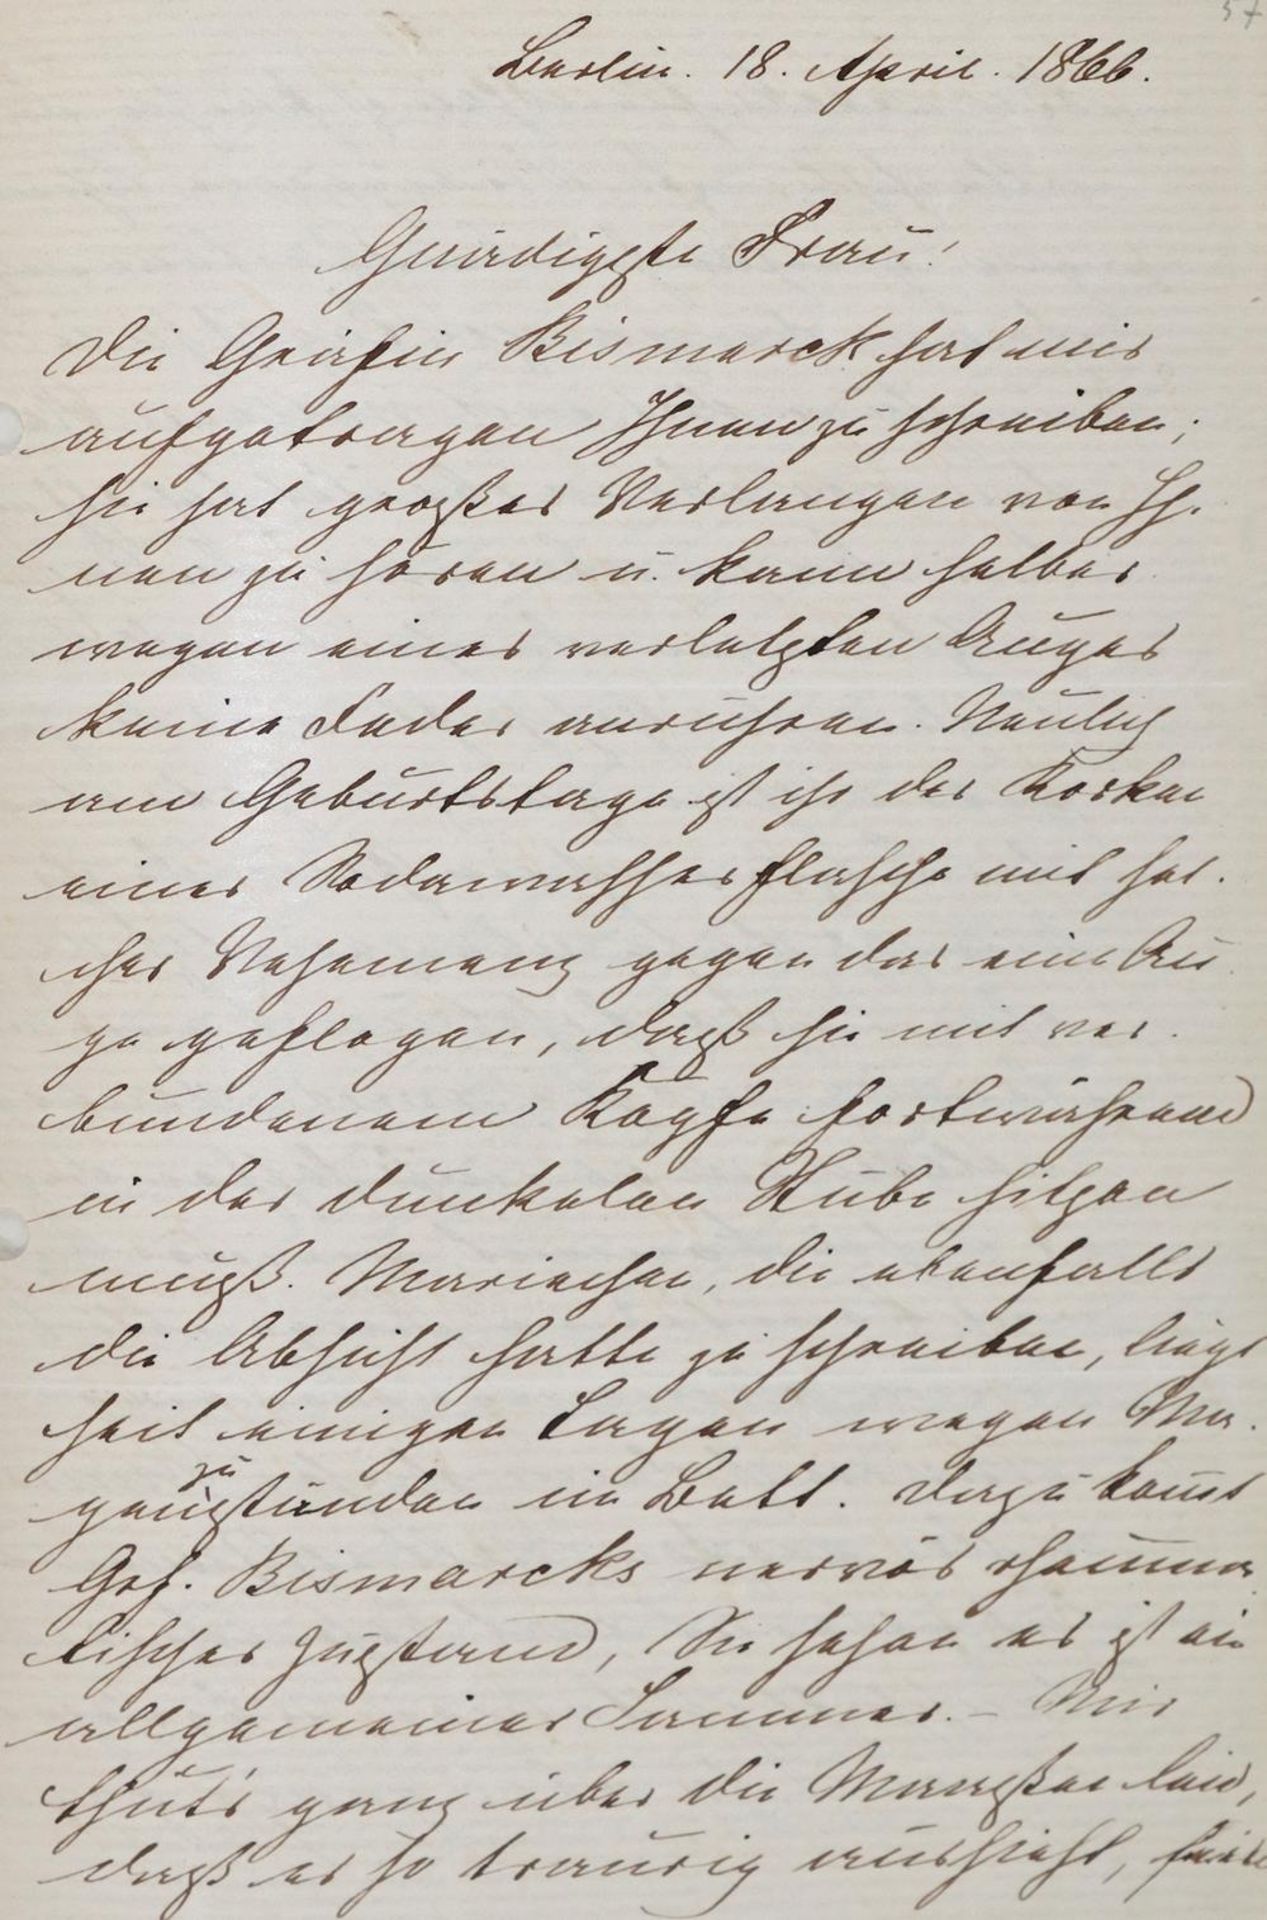 57
Berlin. 18. April. 1866.
Gnädigste Frau!
Die Gräfin Bismarck hat mir
aufgetragen Ihnen zu schreiben;
sie hat großes Verlangen von Ih-
nen zu hören u. kann selber
wegen eines verletzten Auges
keine Feder anrühren. Neulich
am Geburtstage ist ihr der Korken
einer Sodawasserflasche mit sol-
cher Vehemenz gegen das eine Au-
ge geflogen, daß sie mit ver-
bundenem Kopfe fortwährend
in der dunkelen Stube sitzen
muß. Mariechen, die ebenfalls
die Absicht hatte zu schreiben, liegt
seit einigen Tagen wegen Ma-
genzuständen im Bett. Dazu kommt
Grf. Bismarcks nervös rheuma-
tischer Zustand, Sie sehen es ist ein
allgemeiner Jammer. – Mir
thut's ganz über die Maaßen leid,
daß es so traurig aussieht,